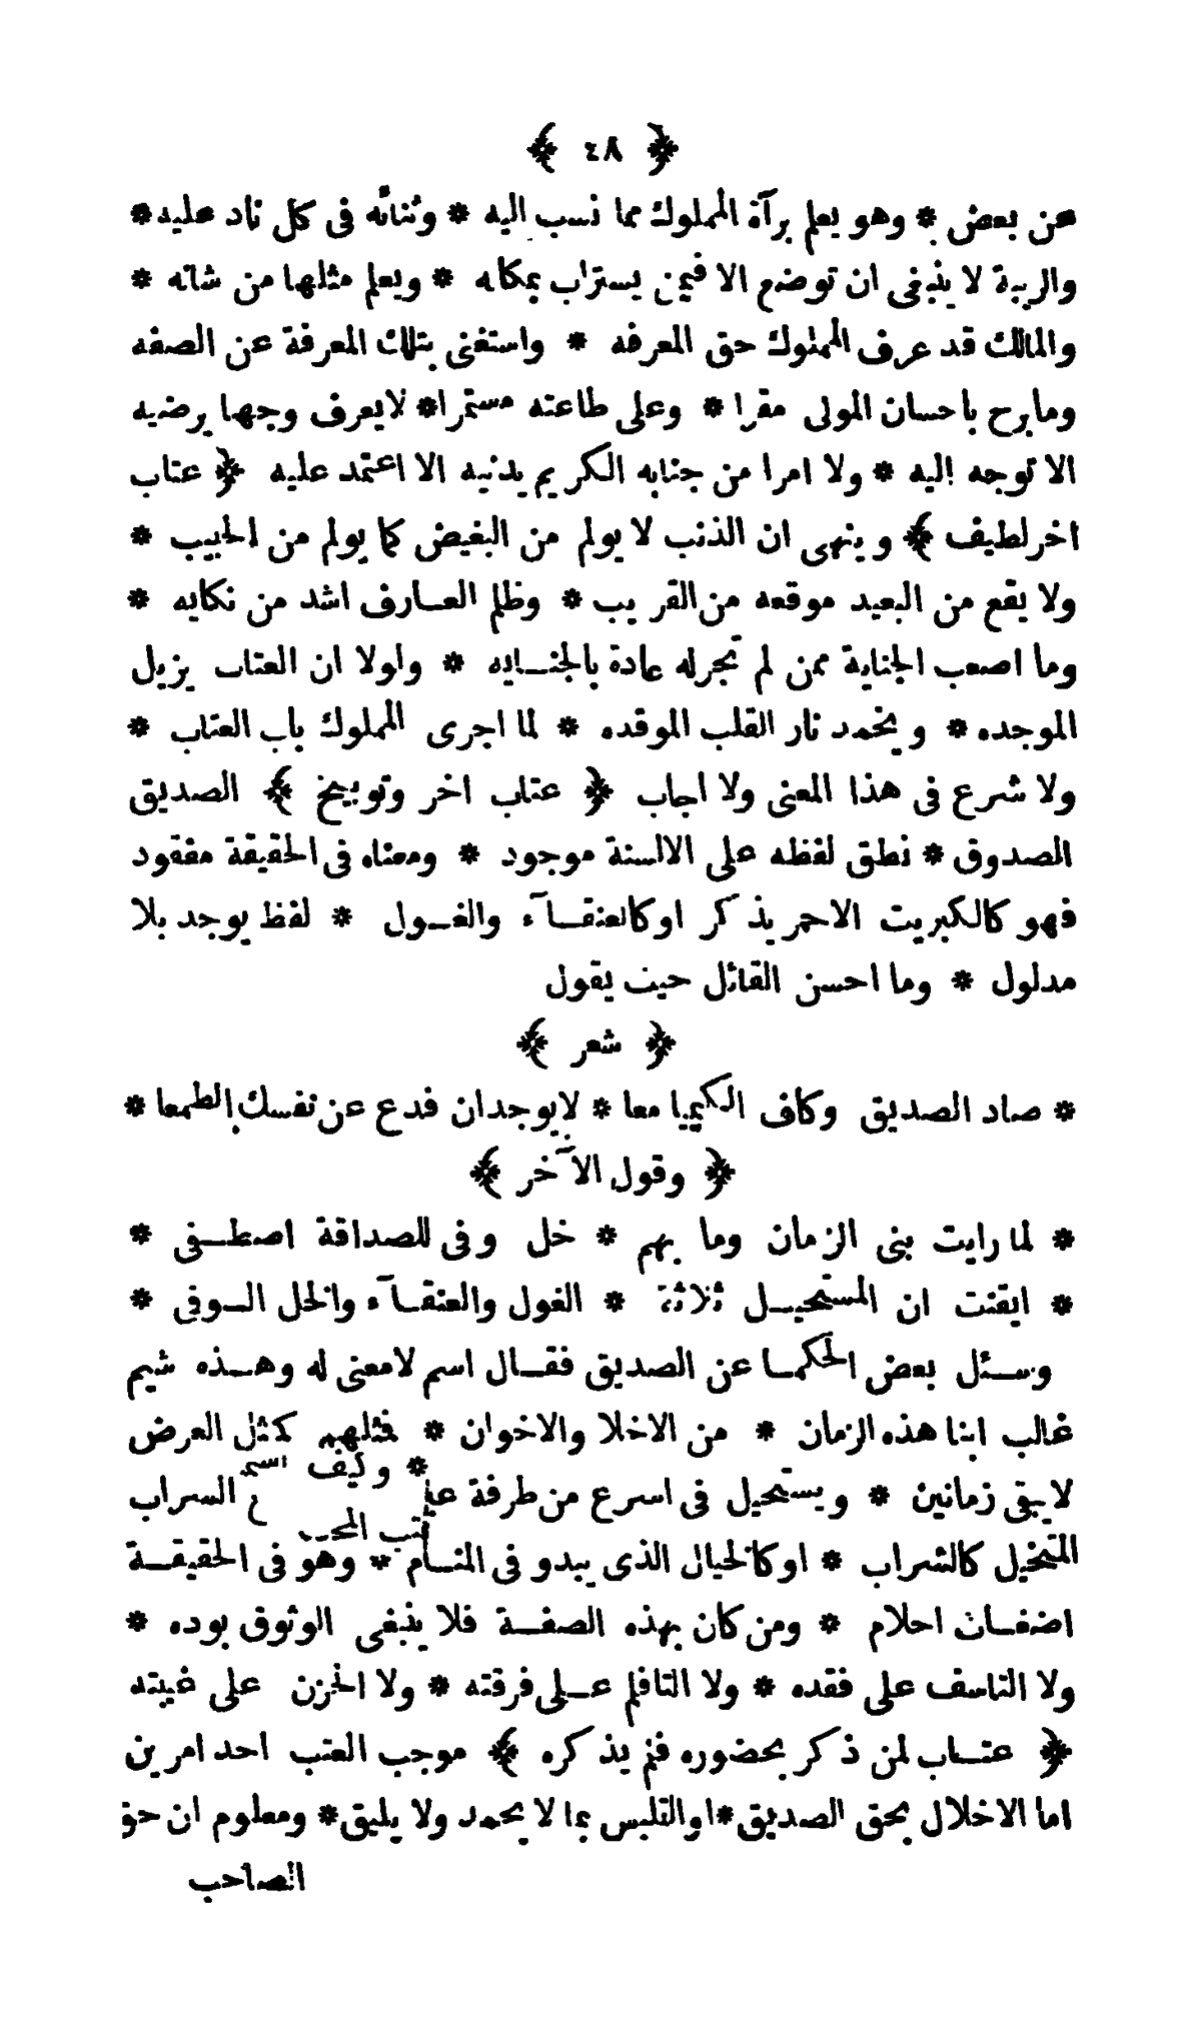 ﴿ ٤٨ ﴾
عن بعض * وهو يعلم برآة المملوك مما نسب اليه * وثنائه فى كل ناد عليه *
والريبة لا ينبغى ان توضع الا فيمن يستراب بمكانه * ويعلم مثلها من شانه *
والمالك قد عرف المملوك حق المعرفه * واستغنى بتلك المعرفة عن الصفه
وما برح باحسان المولى مقرا * وعلى طاعته مستمرا * لايعرف وجها يرضيه
الا توجه اليه * ولا امرا من جنابه الكريم يدنيه الا اعتمد عليه ﴿ عتاب
اخر لطيف ﴾ وينهى ان الذنب لا يولم من البغيض كما يولم من الحبيب *
ولا يقع من البعيد موقعه من القريب * وظلم العارف اشد من نكايه *
وما اصعب الجناية ممن لم تجر له عادة بالجنايه * ولولا ان العتاب يزيل
الموجده * ويخمد نار القلب الموقده * لما اجرى المملوك باب العتاب *
ولا شرع فى هذا المعنى ولا اجاب ﴿ عتاب اخر وتوبيخ ﴾ الصديق
الصدوق * نطق لفظه على الالسنة موجود * ومعناه فى الحقيقة مفقود
فهو كالكبريت الاحمر يذكر او كالعنقآء والغول * لفظ يوجد بلا
مدلول * وما احسن القائل حيث يقول
﴿ شعر ﴾
* صاد الصديق وكاف الكيميا معا * لايوجدان فدع عن نفسك الطمعا *
﴿ وقول الآخر ﴾
* لما رايت بنى الزمان وما بهم * خل وفى للصداقة اصطفى *
* ايقنت ان المستحيل ثلاثة * الغول والعنقآء والخل الوفى *
وسئل بعض الحكما عن الصديق فقال اسم لامعنى له وهذه شيم
غالب ابنا هذه الزمان * من الاخلا والاخوان * فمثلهم كمثل العرض
لايبقى زمانين * ويستحيل فى اسرع من طرفة * وكيف السراب
المتخيل كالشراب * او كالخيال الذى يبدو فى المنام * وهو فى الحقيقة
اضغاث احلام * ومن كان بهذه الصفة فلا ينبغى الوثوق بوده *
ولا التاسف على فقده * ولا التافلم على فرقته * ولا الحزن على غيبته
﴿ عتاب لمن ذكر بحضوره فلم يذكره ﴾ موجب العتب احد امرين
اما الاخلال بحق الصديق * او التلبس بما لا يحمد ولا يليق * ومعلوم ان حق
الصاحب